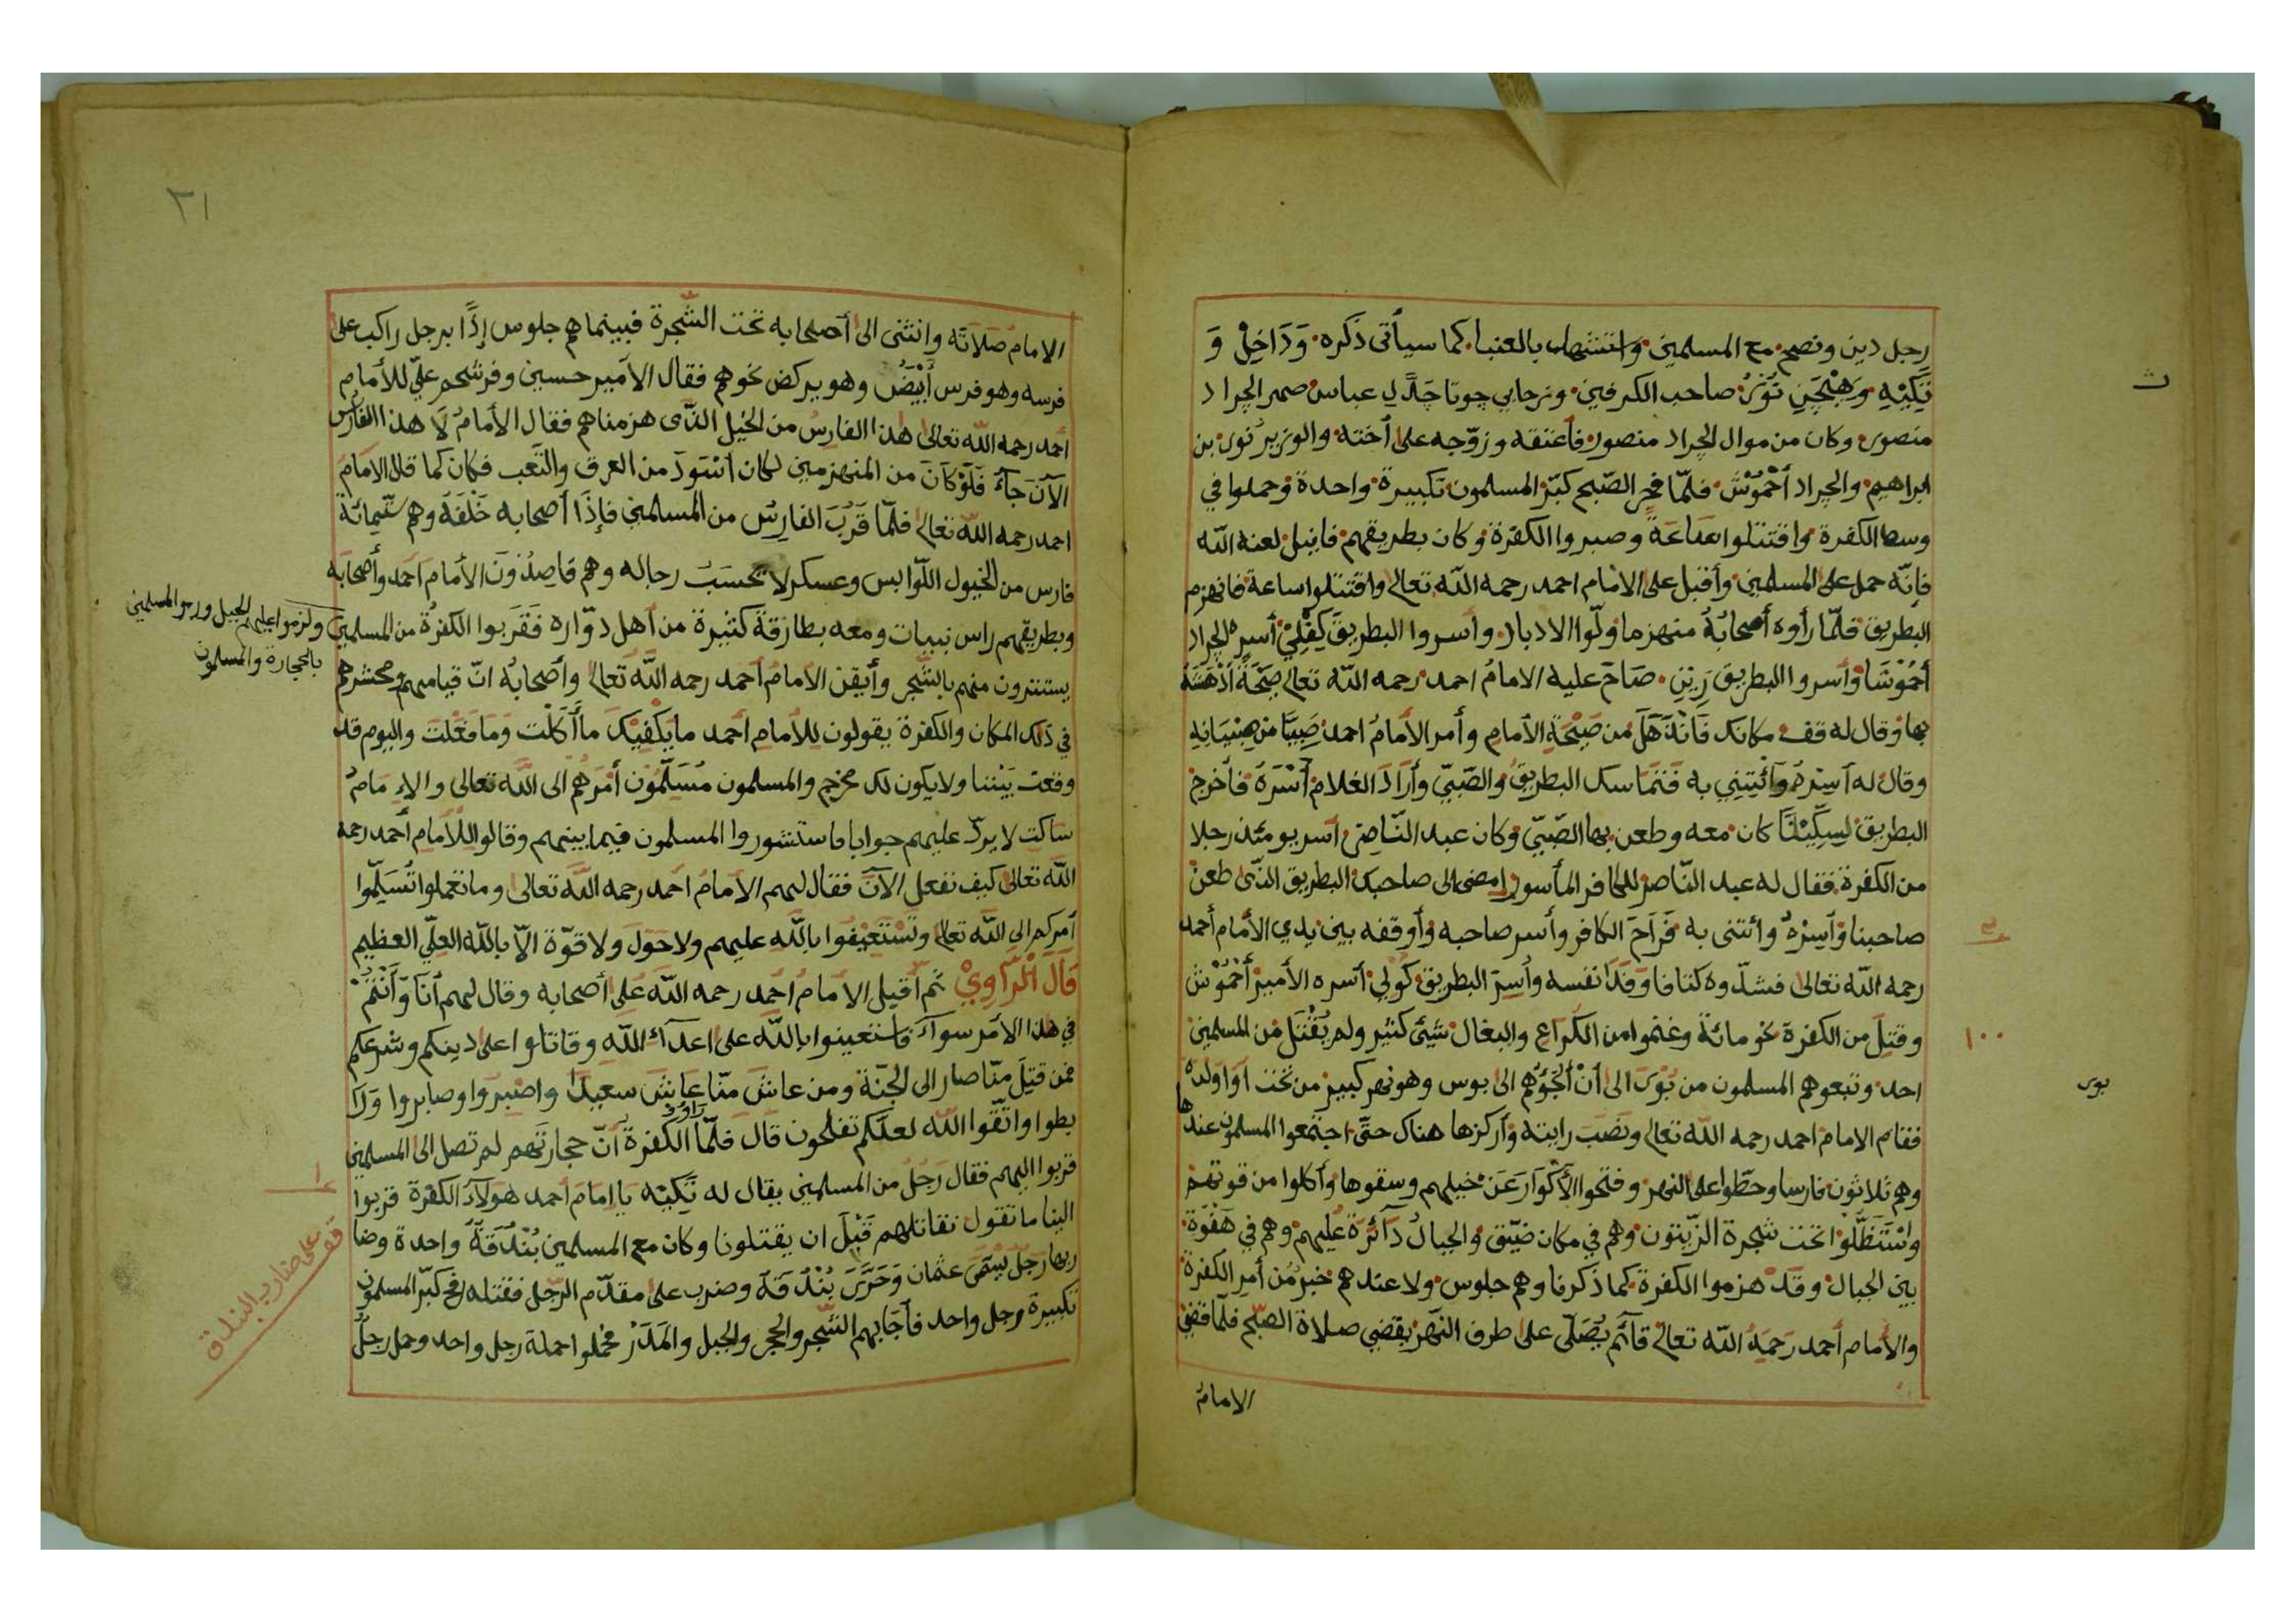 رجل دين ونصح مع المسلمين واستشهاب بالعنبا كما سيأتى ذكره وَدَاخِلْ وَ
تَكِيْهِ وهِنْجَنِ تُوَرُ صاحب الكرفين وزحابي جوتا جَدَّ لِ عباس صهر الجراد
منصور وكان من موال الجراد منصور فأعتقه وزوّجه على أخته والوزير نور بن
ابراهيم والجراد أَحْمُوْشَ فلمّا فجر الصّبح كبّر المسلمون تكبيرة واحدة وحملوا في
وسط الكفرة واقتتلوا ساعَةً وصبروا الكفرة وكان بطريقهم فانيل لعنه الله
فإنّه حمل على المسلمين وأقبل على الامام احمد رحمه الله تعالى واقتتلوا ساعة فانهزم
البطريق فلمّا رأوه أصحابُهُ منهزما ولّوا الادبار وأسروا البطريق كِفْلِيْ أسره الجراد
أَحْمُوْشَا وأسروا البطريق رِيِنِ صَاحَ عليه الامامُ احمد رحمه الله تعالى صَيْحَةً أَدْهَشَهُ
بها وقال له قف مكانك فَانْذَهَلَ من صَيْحَةِ الأمامِ وأمر الأمامُ احمد صَبِيَّا من صِبْيَانِهِ
وقال له أسِرْه وَأئْتِيْنِي به فَتَمَاسك البطريقُ والصّبيّ وأرَادَ الغلامُ أَسْرَهُ فأخرج
البطريق لِسِكِّيْنًا كان معه وطعن بها الصّبيّ وكان عبد النّاصر أسر يومئذ رجلا
من الكفرة فقال له عبد النّاصر للكافر المأسور إمضى الى صاحبك البطريق الذّى طعن
صاحبنا وَأسِرْهُ وائتنى به فَرَاحَ الكافر وأسر صاحبه وأوقفه بين يدي الأمام أحمد
رحمه الله تعالى فشدّوه كتافا وَفَدَا نفسه وأُسِرَ البطريق كُوْلِيْ أسره الأميرْ أَحْمُوْش
وقتِلَ من الكفرة نحو مائة وغنموا من الكُراع والبغال شَيْئ كثير ولم يُقْتَل من المسلمين
احد وتبعوهم المسلمون من بُوْرَ الى أَنْ ألْجَؤُهم الى بوس وهو نهر كبير من تحت أوا ولده
فقام الامام احمد رحمه الله تعالى ونصَبَ رايته وأركزها هناك حتّى اجتمعوا المسلمون عندها
وهم ثلاثون فارسا وحطّوا على النهر وفتحوا الأكْوَارَ عَنْ خيلهم وسقوها وأكلوا من قوتهمْ
واسْتَظَلَّوْا تحت شجرة الزّيتون وهم في مكان ضيّق والجبالُ دَائرَة عليهم وهم في هَفْوَة
بين الجبال وقَدْ هزموا الكفرة كما ذكرنا وهم جلوس ولا عندهم خبرٌ من أمر الكفرة
والأمام أحمد رَحِمَهُ الله تعالى قآئم يُصَلّى على طرف النّهر يقضي صلاة الصّبح فلمّا قضى
الامامُ
ث
١٠٠
بور
٢١
الامامُ صَلاَتَه وانثنى الى أصحابه تحت الشّجرة فبينما هم جلوس إذًا برجل راكب على
فرسه وهو فرس أَبْيَضُ وهو يركض نحوهم فقال الأمير حسين وفرشحم عليّ للأمام
أحمد رحمه الله تعالى هذا الفارسُ من الخيل الذّى هزمناهم فقال الأمامُ لَا هذا الفارس
الآنَ جَآءَ فَلَوْ كَانَ من المنهزمين لكان اسْوَدَ من العرق والتّعب فكان كما قال الامامُ
احمد رحمه الله تعالى فلمّا قَرُبَ الفارِسُ من المسلمين فإذَا أصحابه خَلْفَهُ وهم ستّمائة
فارس من الخيول اللّوابس وعسكر لا تحسَبُ رجاله وهم قاصِدُوْنَ الأمام احمد وأصحابَه
وبطريقهم راس نبيات ومعه بطارقَة كثيرة من أهل دوّاره فَقَربوا الكفرُة من المسلمين
ولزموا عليهم الجبل ورموا المسلمين
بالحجارة والمسلمون
يستترون منهم بالشّجر وأيقن الامامُ أحمد رحمه الله تَعالى وأصحابهُ انّ قيامهم ومحشرهم
في ذلك المكان والكفرة يقولون للأمامِ أحمد ما يَكْفِيْكَ ماأَكَلْت وَمَا فَعْلتَ واليوم قد
وقعت بَيْننا ولا يكون لك مخرج والمسلمون مُسَلِّمُوْن أَمْرَهُم الى الله تعالى والإمَامُ
ساكت لا يردّ عليهم جوابا فاستشوروا المسلمون فيما بينهم وقالوا للأمامِ أحمد رحمه
الله تعالى كيف نفعل الآنَ فقال لهم الامامُ احمد رحمه الله تعالى وما تعملوا تُسَلّموا
أمركم الى الله تعالى وتَسْتَعِيْنُوا باللهِ عليهم ولا حَوْلَ ولا قوّة الاّ بالله العلّي العظيم
قَالَ الْرَّاوِيْ ثم أقبل الأمامُ احمد رحمه الله عَلى أصحابه وقال لهم أنَا وَأَنْتُمْ
في هذا الأمر سوآء فاستعينوا باللهِ على اعدآء اللهِ وقاتلوا على دينكم وشرعكم
فمن قتِلَ منّا صار الى الجنّة ومن عاشَ منّا عَاشَ سعيدًا واصْبِرُوا وصابروا وَرَا
بطوا واتّقُوا الله لعلّكم تفلحون قال فَلمّا رَاوُ الكفرةُ أنّ حجارتَهم لم تصل الى المسلمين
قربوا اليهم فقال رَجُلُ من المسلمين يقال له تَكِيَه يا إمامَ أحمد هَولآءِ الكفرة قربوا
الينا ما تقول نقاتلهم قَبْلَ ان يقتلونا وكان مع المسلمين بُنْدُقَةٌ واحدة وضا
ربها رَجُلٌ يُسَمّى عثمان وَحَرَّرَ بُنْدُقَهُ وضرب على مقدّم الرّجل فقتله فكبّر المسلمون
تكبيرة رجل واحد فأَجَابهم الشّجر والحجر والجبل والمَدَرُ فحملوا حملة رجل واحد وحمل رجلٌ
قف على ضارب البندق